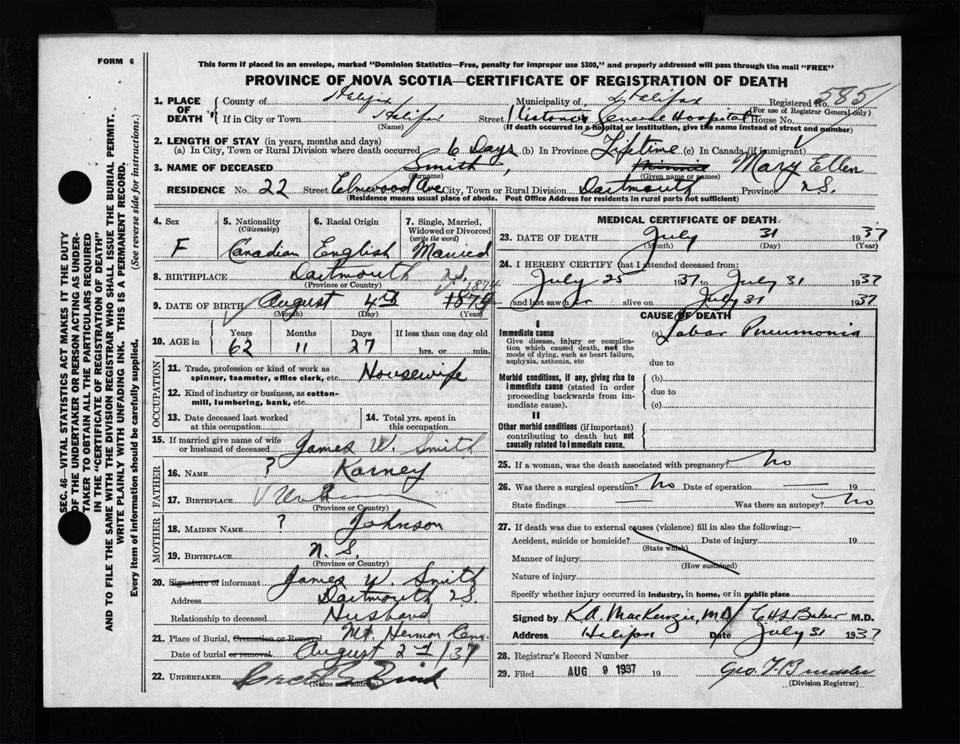 FORM 6
This form if placed in an envelope, marked "Dominion Statistics—Free, penalty for improper use $300," and properly addressed will pass through the mail "FREE"
PROVINCE OF NOVA SCOTIA—CERTIFICATE OF REGISTRATION OF DEATH
SEC. 46—VITAL STATISTICS ACT MAKES IT THE DUTY
OF THE UNDERTAKER OR PERSON ACTING AS UNDER-
TAKER TO OBTAIN ALL THE PARTICULARS REQUIRED
IN THE "CERTIFICATE OF REGISTRATION OF DEATH"
AND TO FILE THE SAME WITH THE DIVISION REGISTRAR WHO SHALL ISSUE THE BURIAL PERMIT.
WRITE PLAINLY WITH UNFADING INK. THIS IS A PERMANENT RECORD.
Every item of information should be carefully supplied. (See reverse side for instructions.)
1. PLACE OF DEATH County of Halifax Municipality of Halifax Registered No. 585
(For use of Registrar General only)
If in City or Town Halifax Street Victoria General Hospital House No.
(Name) (If death occurred in a hospital or institution, give the name instead of street and number)
2. LENGTH OF STAY (in years, months and days)
(a) In City, Town or Rural Division where death occurred 6 Days (b) In Province Lifetime (c) In Canada (if immigrant)
3. NAME OF DECEASED Smith, Minnie Mary Ellen
(Surname) (Given name or names)
RESIDENCE No. 22 Street Elmwood Ave City, Town or Rural Division Dartmouth Province N.S.
(Residence means usual place of abode. Post Office Address for residents in rural parts not sufficient)
4. Sex 5. Nationality (Citizenship) 6. Racial Origin 7. Single, Married, Widowed or Divorced (write the word)
F Canadian English Married
8. BIRTHPLACE Dartmouth N.S.
(Province or Country)
1874
9. DATE OF BIRTH August 4th 1875
(Month) (Day) (Year)
10. AGE in Years Months Days If less than one day old
62 11 27 hrs. or min.
OCCUPATION
11. Trade, profession or kind of work as spinner, teamster, office clerk, etc. Housewife
12. Kind of industry or business, as cotton-mill, lumbering, bank, etc.
13. Date deceased last worked at this occupation
14. Total yrs. spent in this occupation
15. If married give name of wife or husband of deceased James W. Smith
FATHER
16. Name ? Karney
17. Birthplace
(Province or Country)
MOTHER
18. Maiden Name ? Johnson
19. Birthplace N.S.
(Province or Country)
20. Signature of informant James W. Smith
Address Dartmouth N.S.
Relationship to deceased Husband
21. Place of Burial, Cremation or Removal Mt. Hermon Cem.
Date of burial or removal August 2nd /37
22. UNDERTAKER
(Name and Address)
MEDICAL CERTIFICATE OF DEATH
23. DATE OF DEATH July 31 1937
(Month) (Day) (Year)
24. I HEREBY CERTIFY that I attended deceased from:
July 25 1937 to July 31 1937
and last saw her alive on July 31 1937
CAUSE OF DEATH
I
Immediate cause (a) Lobar Pneumonia
Give disease, injury or complica-
tion which caused death, not the
mode of dying, such as heart failure,
asphyxia, asthenia, etc. due to
Morbid conditions, if any, giving rise to (b)
immediate cause (stated in order due to
proceeding backwards from im-
mediate cause). (c)
II
Other morbid conditions (if important)
contributing to death but not
causally related to immediate cause.
25. If a woman, was the death associated with pregnancy? No
26. Was there a surgical operation? No Date of operation — 19
State findings — Was there an autopsy? No
27. If death was due to external causes (violence) fill in also the following:—
Accident, suicide or homicide? Date of injury 19
(State which)
Manner of injury
(How sustained)
Nature of injury
Specify whether injury occurred in industry, in home, or in public place
Signed by K.A. MacKenzie, M.D. M.D.
Address Halifax Date July 31 1937
28. Registrar's Record Number
29. Filed AUG 9 1937 19
(Division Registrar)